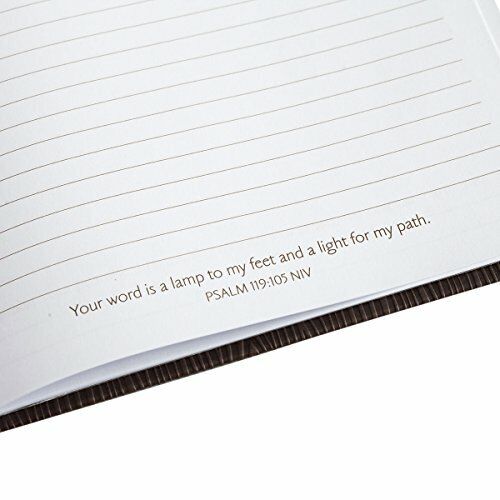 Your word is a lamp to my feet and a light for my path.
PSALM 119:105 NIV